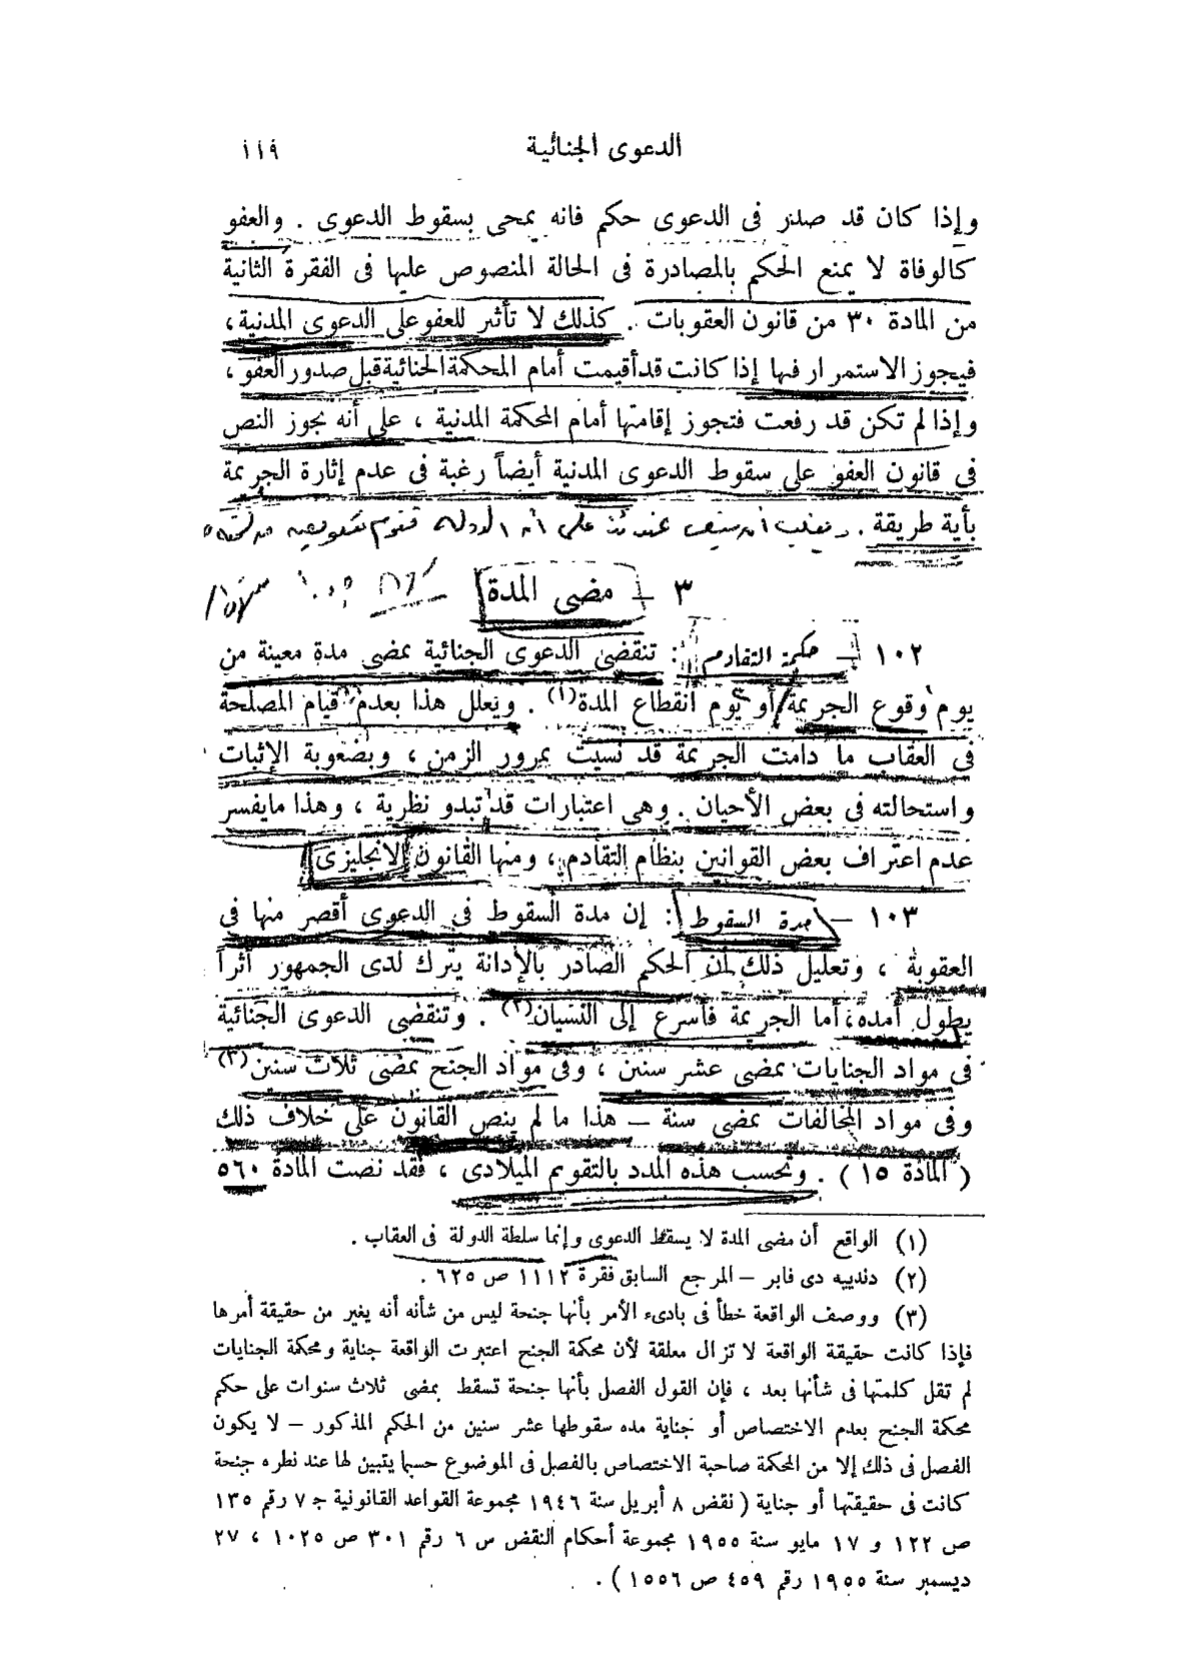 الدعوى الجنائية ١١٩
وإذا كان قد صدر فى الدعوى حكم فانه يمحى بسقوط الدعوى . والعفو
كالوفاة لا يمنع الحكم بالمصادرة فى الحالة المنصوص عليها فى الفقرة الثانية
من المادة ٣٠ من قانون العقوبات . كذلك لا تأثير للعفو على الدعوى المدنية ،
فيجوز الاستمرار فيها إذا كانت قد أقيمت أمام المحكمة الجنائية قبل صدور العفو ،
وإذا لم تكن قد رفعت فتجوز إقامتها أمام المحكمة المدنية ، على أنه يجوز النص
فى قانون العفو على سقوط الدعوى المدنية أيضاً رغبة فى عدم إثارة الجريمة
بأية طريقة . على أن الدولة تقوم بتعويض
٣ – مضى المدة
١٠٢ – حكمة التقادم : تنقضى الدعوى الجنائية بمضى مدة معينة من
يوم وقوع الجريمة أو يوم انقطاع المدة(١) . ويعلل هذا بعدم قيام المصلحة
فى العقاب ما دامت الجريمة قد نسيت بمرور الزمن ، وبصعوبة الإثبات
واستحالته فى بعض الأحيان . وهى اعتبارات قد تبدو نظرية ، وهذا مايفسر
عدم اعتراف بعض القوانين بنظام التقادم ، ومنها القانون الانجليزى
١٠٣ – مدة السقوط : إن مدة السقوط فى الدعوى أقصر منها فى
العقوبة ، وتعليل ذلك أن الحكم الصادر بالإدانة يترك لدى الجمهور أثراً
يطول أمده ، أما الجريمة فأسرع إلى النسيان(٢) . وتنقضى الدعوى الجنائية
فى مواد الجنايات بمضى عشر سنين ، وفى مواد الجنح بمضى ثلاث سنين(٣)
وفى مواد المخالفات بمضى سنة – هذا ما لم ينص القانون على خلاف ذلك
( المادة ١٥ ) . وتحسب هذه المدد بالتقويم الميلادى ، فقد نصت المادة ٥٦٠
(١) الواقع أن مضى المدة لا يسقط الدعوى وإنما سلطة الدولة فى العقاب .
(٢) دندييه دى فابر – المرجع السابق فقرة ١١١٢ ص ٦٢٥ .
(٣) ووصف الواقعة خطأ فى بادىء الأمر بأنها جنحة ليس من شأنه أنه يغير من حقيقة أمرها
فإذا كانت حقيقة الواقعة لا تزال معلقة لأن محكمة الجنح اعتبرت الواقعة جناية ومحكمة الجنايات
لم تقل كلمتها فى شأنها بعد ، فإن القول الفصل بأنها جنحة تسقط بمضى ثلاث سنوات على حكم
محكمة الجنح بعدم الاختصاص أو جناية مده سقوطها عشر سنين من الحكم المذكور – لا يكون
الفصل فى ذلك إلا من المحكمة صاحبة الاختصاص بالفصل فى الموضوع حسبما يتبين لها عند نظره جنحة
كانت فى حقيقتها أو جناية ( نقض ٨ أبريل سنة ١٩٤٦ مجموعة القواعد القانونية ج ٧ رقم ١٣٥
ص ١٢٢ و ١٧ مايو سنة ١٩٥٥ مجموعة أحكام النقض س ٦ رقم ٣٠١ ص ١٠٢٥ ، ٢٧
ديسمبر سنة ١٩٥٥ رقم ٤٥٩ ص ١٥٥٦ ) .